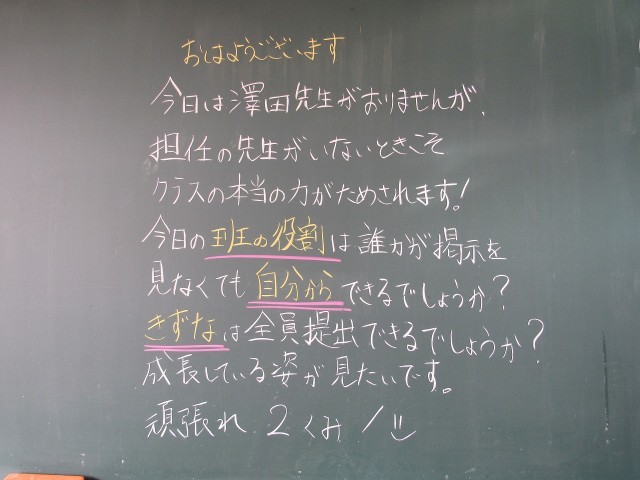 おはようございます
今日は澤田先生がおりませんが、
担任の先生がいないときこそ
クラスの本当の力がためされます!
今日の班の役割は誰かが掲示を
見なくても自分からできるでしょうか?
きずなは全員提出できるでしょうか?
成長している姿が見たいです。
頑張れ 2くみ!